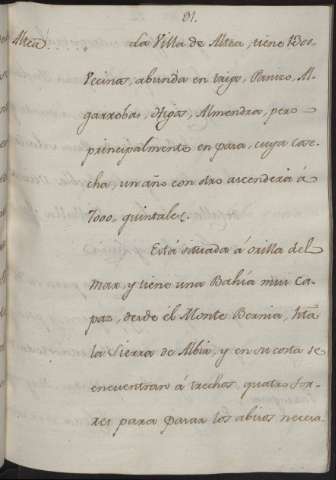 91.
Altea..... La Villa de Altea, tiene 1300
Vecinos, abunda en trigo, Panizo, Al
garrobas, Higos, Almendra, pero
principalmente en pasa, cuya cose
cha, un año con otro ascenderá á
7000, quintales.
Está situada á orilla del
mar, y tiene una Bahía mui ca
paz, desde el Monte Bernia, htã
la Sierra de Albir, y en su costa se
encuentran á trechos, quatro Tor
res para parar los abisos necesa